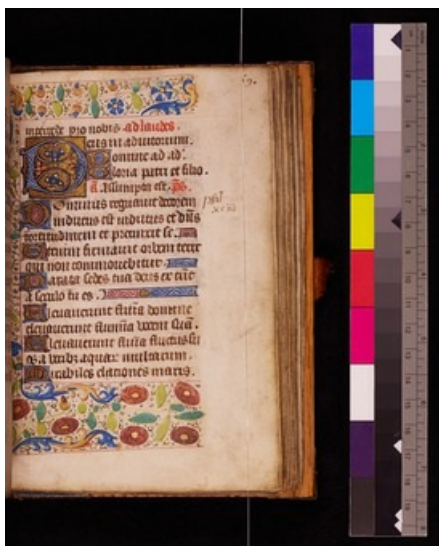 intercede pro nobis. ad laudes.
Deus in adiutorium.
Domine ad ad
Gloria patri et filio.
a. Assumpta est. ps.
Dominus regnavit decorem
indutus est indutus est dns
fortitudinem et precinxit se.
Etenim firmavit orbem terre
qui non commovebitur.
Parata sedes tua deus ex tunc
a seculo tu es.
Elevaverunt flumina domine
elevaverunt flumina vocem suam.
Elevaverunt flumina fluctus su
os a vocibz aquarum multarum.
Mirabiles elationes maris.